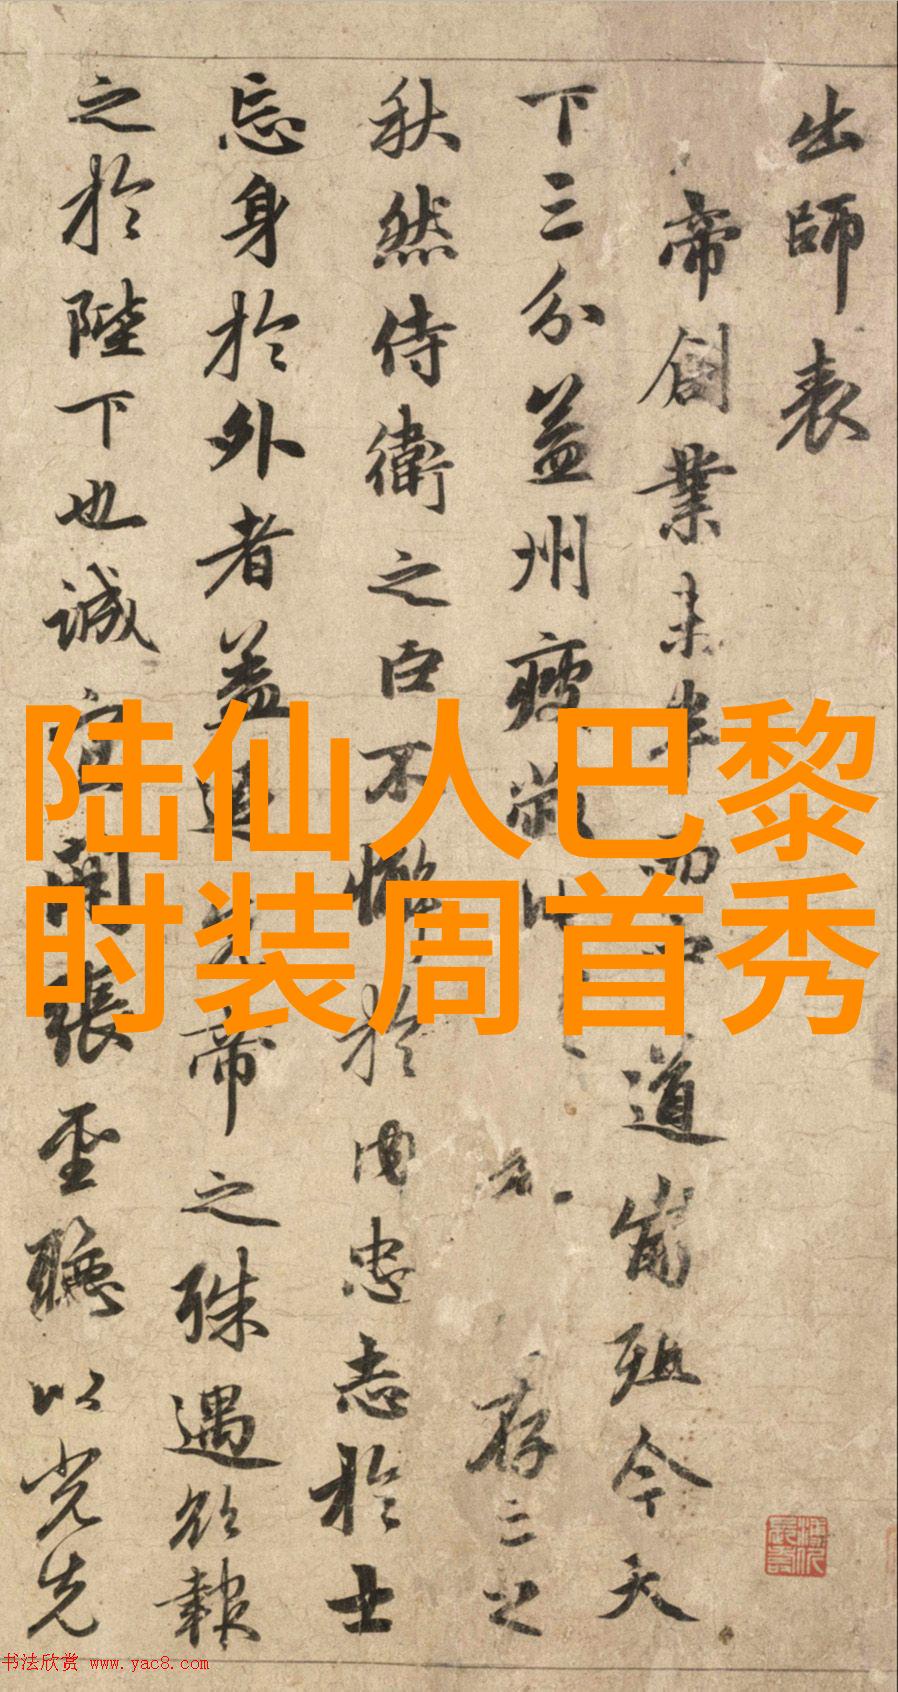 出師表
帝創業未半而中道崩殂今天
下三分益州疲敝此 存亡之
秋然侍衛之臣不懈於內忠志於士
忘身於外者蓋追先帝之殊遇欲報
之於陛下也誠宜開張聖聽以光先
陆仙人巴黎
时装周首秀
书法欣赏 www.yac8.com